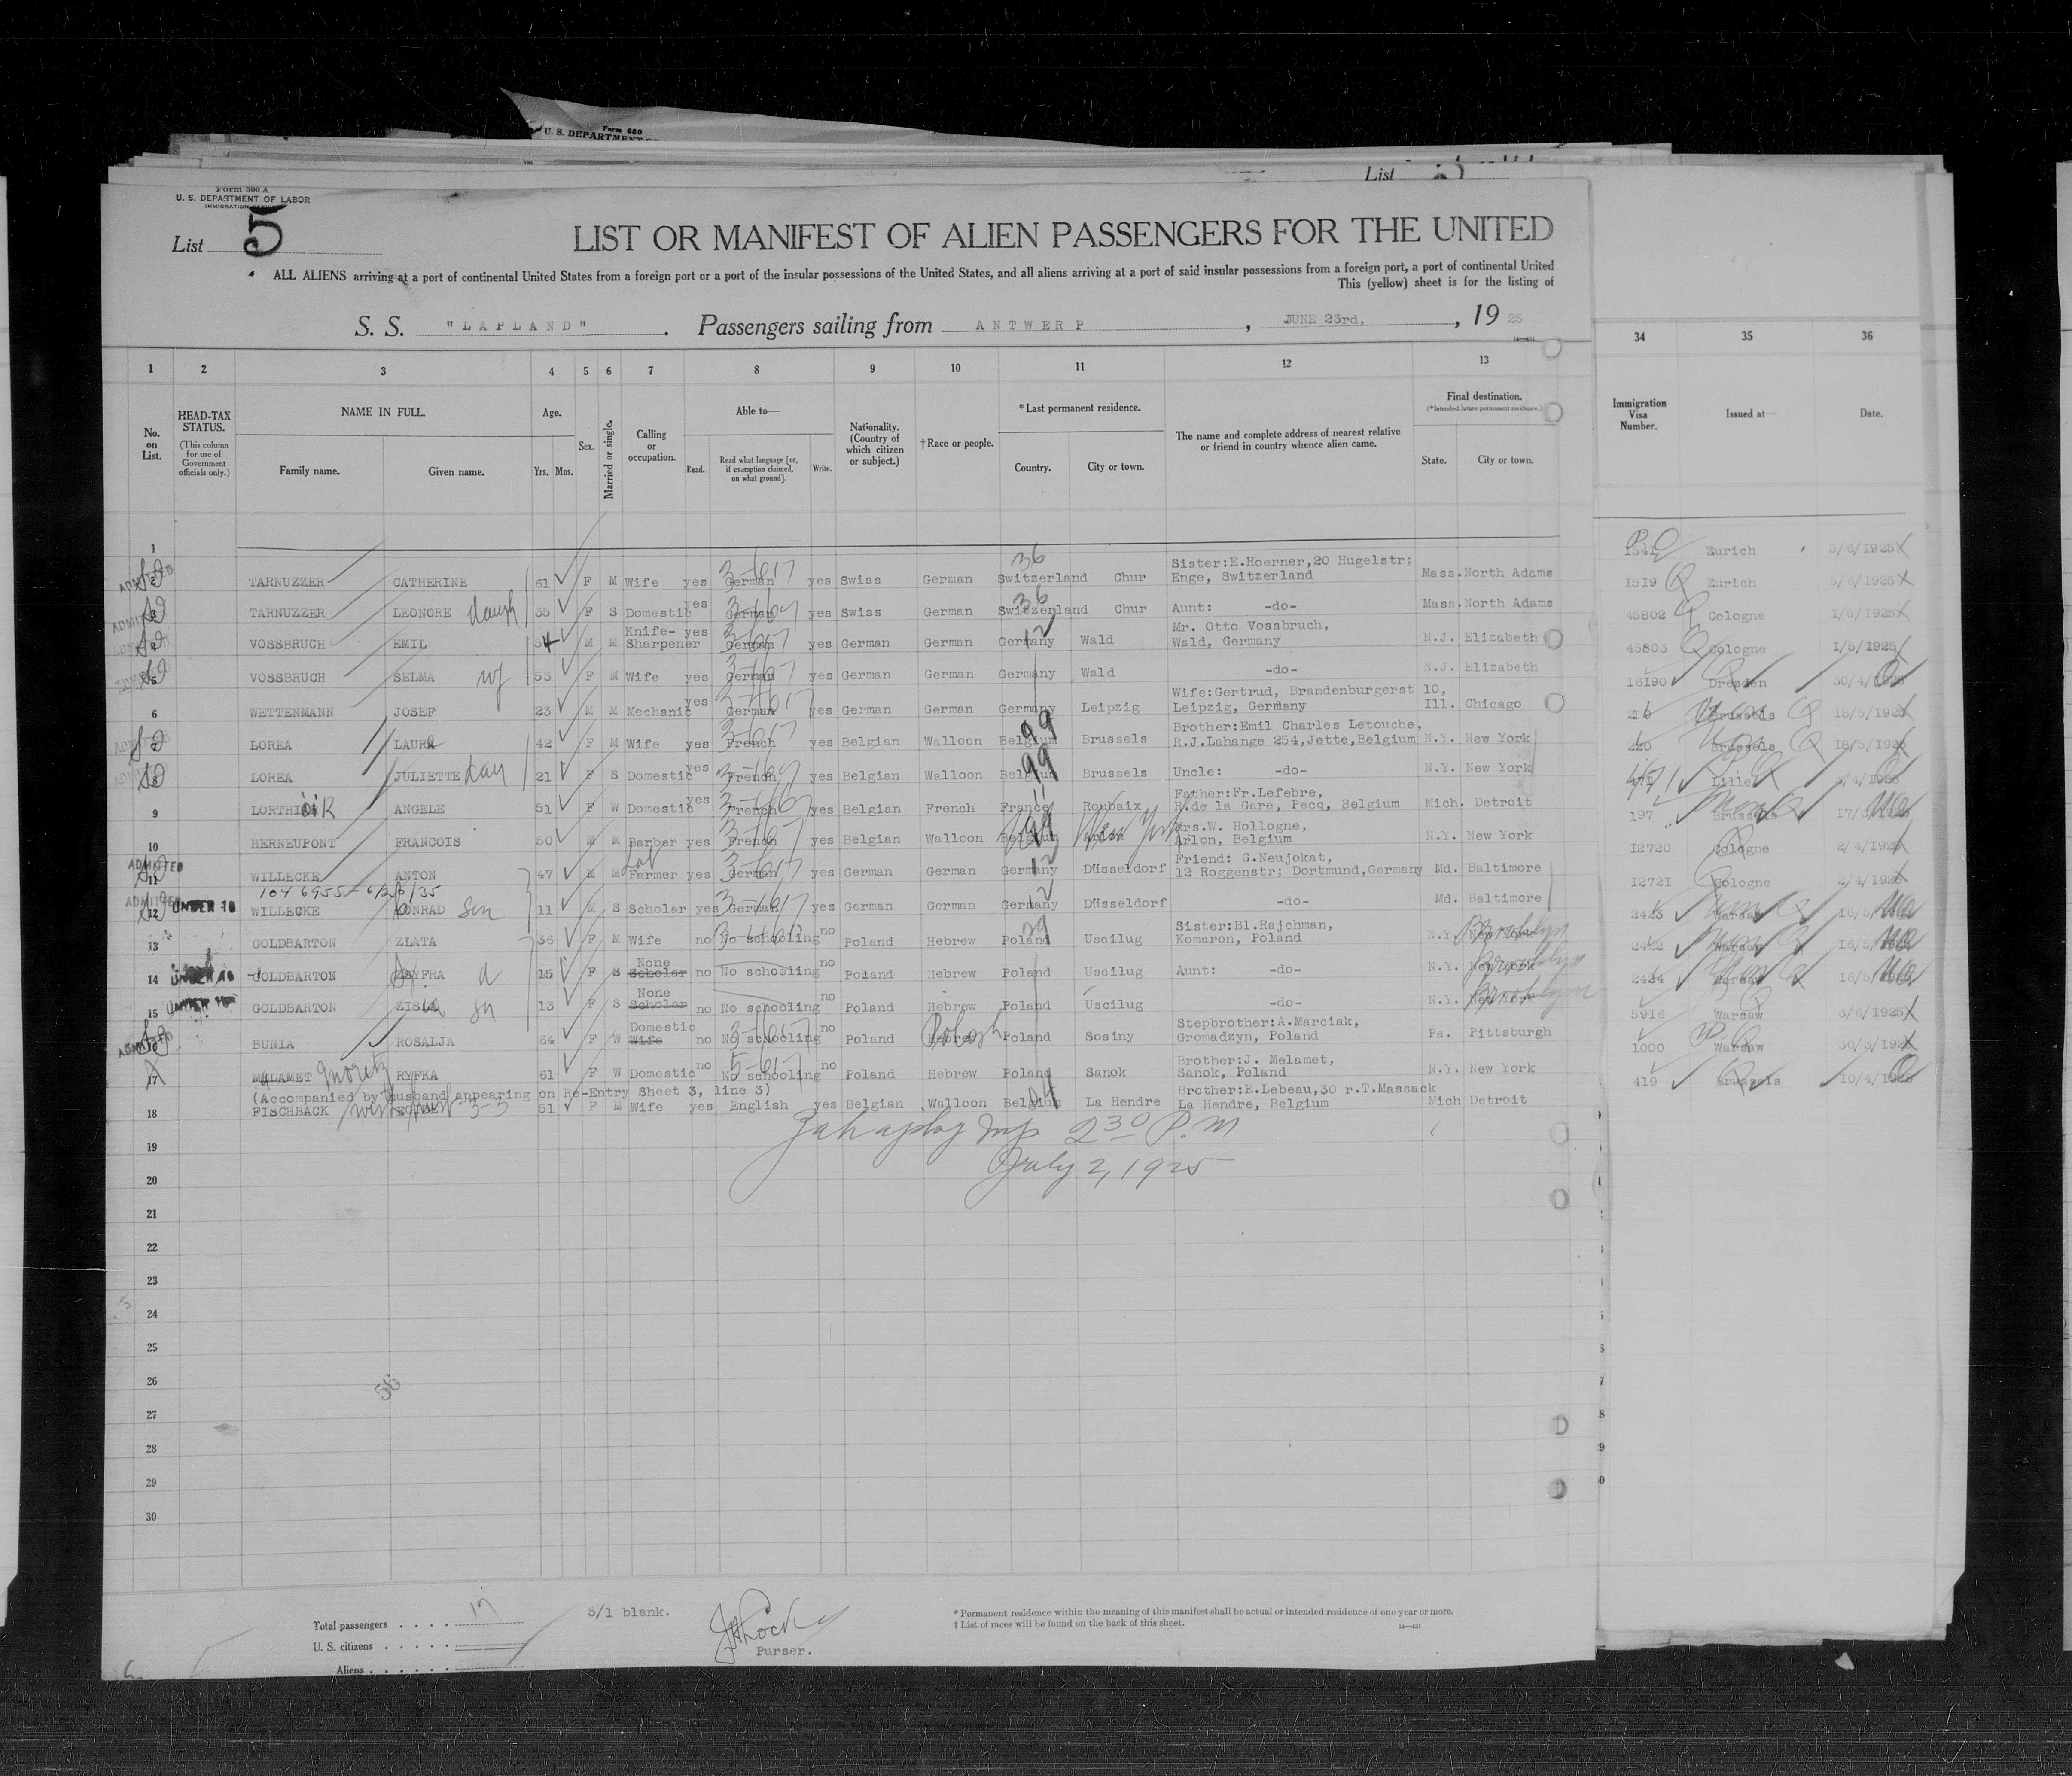 Form 680
U. S. DEPARTMENT
List
Form 500 A
U. S. DEPARTMENT OF LABOR
IMMIGRATION SERVICE
List 5
LIST OR MANIFEST OF ALIEN PASSENGERS FOR THE UNITED
ALL ALIENS arriving at a port of continental United States from a foreign port or a port of the insular possessions of the United States, and all aliens arriving at a port of said insular possessions from a foreign port, a port of continental United
This (yellow) sheet is for the listing of
S. S. "LAPLAND" . Passengers sailing from ANTWERP , JUNE 23rd, , 19 25
1 2 3 4 5 6 7 8 9 10 11 12 13 34 35 36
No. on List.
HEAD-TAX STATUS.
(This column for use of Government officials only.)
NAME IN FULL.
Family name. Given name.
Age.
Yrs. Mos.
Sex.
Married or single.
Calling or occupation.
Able to—
Read. Read what language [or, if exemption claimed, on what ground]. Write.
Nationality. (Country of which citizen or subject.)
† Race or people.
* Last permanent residence.
Country. City or town.
The name and complete address of nearest relative or friend in country whence alien came.
Final destination.
(*Intended future permanent residence.)
State. City or town.
Immigration Visa Number.
Issued at—
Date.
1
1541 Zurich 5/6/1925
TARNUZZER CATHERINE 61 F M Wife yes German yes Swiss German Switzerland Chur Sister:E.Hoerner,20 Hugelstr; Enge, Switzerland Mass. North Adams
36
1519 Zurich 5/6/1925
TARNUZZER LEONORE daugh 35 F S Domestic yes German yes Swiss German Switzerland Chur Aunt: -do- Mass. North Adams
36
45802 Cologne 1/5/1925
VOSSBRUCH EMIL 54 M M Knife-Sharpener yes German yes German German Germany Wald Mr. Otto Vossbruch, Wald, Germany N.J. Elizabeth
12
45803 Cologne 1/5/1925
VOSSBRUCH SELMA wf 53 F M Wife yes German yes German German Germany Wald -do- N.J. Elizabeth
16190 Dresden 30/4/1925
6 WETTENMANN JOSEF 23 M M Mechanic yes German yes German German Germany Leipzig Wife:Gertrud, Brandenburgerst 10, Leipzig, Germany Ill. Chicago
Brussels 18/5/1925
LOREA LAURA 42 F M Wife yes French yes Belgian Walloon Belgium Brussels Brother:Emil Charles Letouche, R.J.Lahange 254,Jette,Belgium N.Y. New York
99
220 Brussels 18/5/1925
LOREA JULIETTE dau 21 F S Domestic yes French yes Belgian Walloon Belgium Brussels Uncle: -do- N.Y. New York
99
Lille
9 ANGELE 51 F W Domestic yes French yes Belgian French France Roubaix Father:Fr.Lefebre, R.de la Gare, Pecq, Belgium Mich. Detroit
197 Brussels
10 HERNEUPONT FRANCOIS 50 M M Barber yes French yes Belgian Walloon Belgium New York Mrs.W. Hollogne, Arlon, Belgium N.Y. New York
99
12720 Cologne 2/4/1925
ADMITTED
11 WILLECKE ANTON 47 M M Farmer yes German yes German German Germany Düsseldorf Friend: G.Neujokat, 12 Roggenstr; Dortmund,Germany Md. Baltimore
12
12721 Cologne 2/4/1925
ADMITTED
12 UNDER 16 WILLECKE KONRAD son 11 M S Scholar yes German German Germany Düsseldorf -do- Md. Baltimore
2423 Warsaw 16/5/
13 GOLDBARTON ZLATA 36 F M Wife no No schooling no Poland Hebrew Poland Uscilug Sister:Bl.Rajchman, Komaron, Poland N.Y. Brooklyn
2422 Warsaw 16/5/
14 UNDER 16 GOLDBARTON 15 F S None Scholar no No schooling no Poland Hebrew Poland Uscilug Aunt: -do- N.Y. Brooklyn
2424 Warsaw 16/5/
15 UNDER 16 GOLDBARTON 13 F S None Scholar no No schooling no Poland Hebrew Poland Uscilug -do- N.Y. Brooklyn
5916 Warsaw 3/6/1925
BUNIA ROSALJA 64 F W Domestic Wife no No schooling no Poland Hebrew Polish Poland Sosiny Stepbrother:A.Marciak, Gromadzyn, Poland Pa. Pittsburgh
1000 Warsaw 30/3/1925
17 MALAMET Moretz RYFKA 61 F W Domestic no No schooling no Poland Hebrew Poland Sanok Brother:J. Melamet, Sanok, Poland N.Y. New York
419 Brussels 10/4/1925
(Accompanied by husband appearing on Re-Entry Sheet 3, line 3)
18 FISCHBACK 51 F M Wife yes English yes Belgian Walloon Belgium La Hendre Brother:E.Lebeau,30 r.T.Massack La Hendre, Belgium Mich Detroit
2 30 P.M
19
July 2, 1925
20
21
22
23
24
25
26
56
27
28
29
30
Total passengers . . . . 17
U. S. citizens . . . .
Aliens . . . . . .
5/1 blank.
Purser.
* Permanent residence within the meaning of this manifest shall be actual or intended residence of one year or more.
† List of races will be found on the back of this sheet.